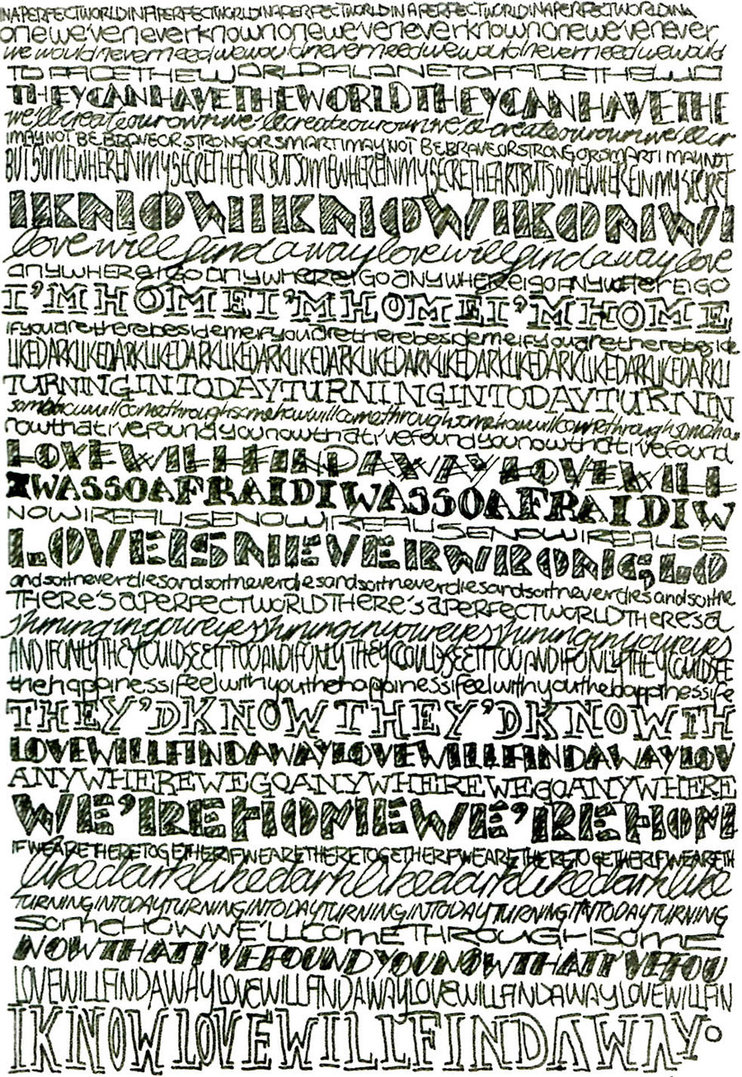 INAPERFECTWORLDINAPERFECTWORLDINAPERFECTWORLDINAPERFECTWORLDINAPERFECTWORLDINA
onewe'veneverknownonewe'veneverknownonewe'venever
wewouldneverneedwewouldneverneedwewouldneverneedwewould
TOFACETHEWORLDALONETOFACETHEWO
THEYCANHAVETHEWORLDTHEYCANHAVETHE
we'llcreateourownwe'llcreateourownwe'llcreateourownwe'llcr
IMAYNOTBEBRAVEORSTRONGORSMARTIMAYNOTBEBRAVEORSTRONGORSMARTIMAYNOT
BUTSOMEWHEREINMYSECRETHEARTBUTSOMEWHEREINMYSECRETHEARTBUTSOMEWHEREINMYSECRET
IKNOWIIKNOWIKONWI
lovewillfindawaylovewillfindawaylove
anywhereigoanywhereigoanywhereigoanywhereigo
I'MHOMEI'MHOMEI'MHOME
ifyouaretherebesidemeifyouaretherebesidemeifyouaretherebeside
LIKEDARKLIKEDARKLIKEDARKLIKEDARKLIKEDARKLIKEDARKLIKEDARKLIKEDARKLI
TURNINGINTODAYTURNINGINTODAYTURNIN
somehowwillcomethroughsomehowwillcomethroughsomehowwillcomethroughsomehow
nowthati'vefoundyounowthati'vefoundyounowthati'vefound
LOVEWILLFINDAWAYLOVEWILL
IWASSOAFRAIDIWASSOAFRAIDIW
NOWIREALISENOWIREALISENOWIREALISE
LOVEISNEVERWRONG,LO
andsoitneverdiesandsoitneverdiesandsoitneverdiesandsoitneverdiesandsoitne
THERE'SAPERFECTWORLDTHERE'SAPERFECTWORLDTHERESA
shininginyoureyesshininginyoureyesshininginyoureyes
ANDIFONLYTHEYCOULDSEEITTOOANDIFONLYTHEYCOULDSEEITTOOANDIFONLYTHEYCOULDSEE
thehappinessifeelwithyouthehappinessifeelwithyouthehappinessife
THEY'DKNOWTHEY'DKNOWTH
LOVEWILLFINDAWAYLOVEWILLFINDAWAYLOV
ANYWHEREWEGOANYWHEREWEGOANYWHERE
WE'REHOMEWE'REHOM
IFWEARETHERETOGETHERIFWEARETHERETOGETHERIFWEARETHERETOGETHERIFWEARETH
likedarklikedarklikedarklikedarklike
TURNINGINTODAYTURNINGINTODAYTURNINGINTODAYTURNINGINTODAYTURNING
SOMEHOWWE'LLCOMETHROUGHSOME
NOWTHATI'VEFOUNDYOUNOWTHATI'VEFOU
LOVEWILLFINDAWAYLOVEWILLFINDAWAYLOVEWILLFINDAWAYLOVEWILLFIN
IKNOWLOVEWILLFINDAWAY.